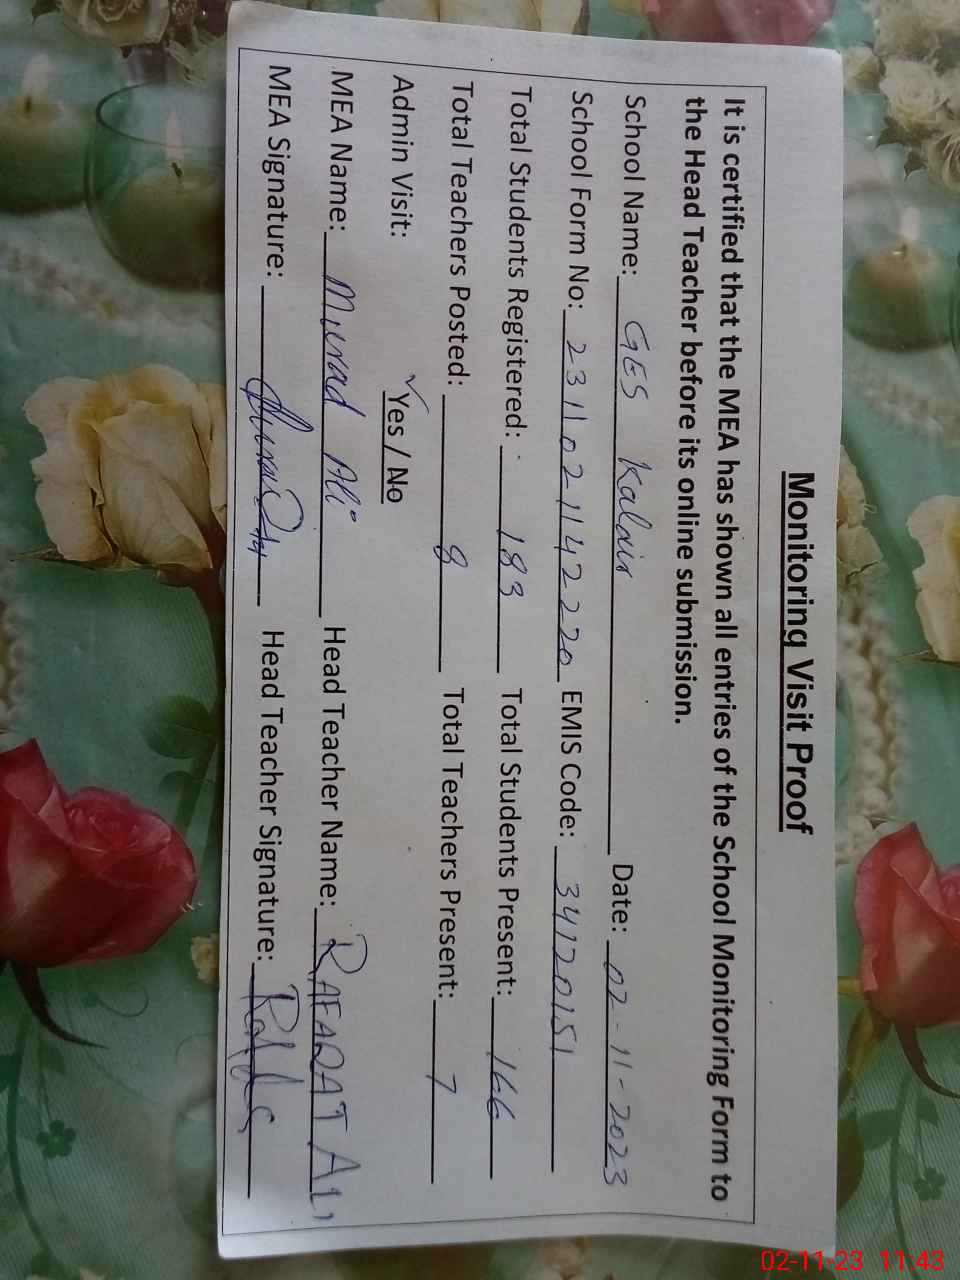 Monitoring Visit Proof
It is certified that the MEA has shown all entries of the School Monitoring Form to
the Head Teacher before its online submission.
School Name: GES Kalair Date: 02-11-2023
School Form No: 2311021142220 EMIS Code: 34120151
Total Students Registered: 183 Total Students Present: 166
Total Teachers Posted: 8 Total Teachers Present: 7
Admin Visit: ✓Yes / No
MEA Name: Murad Ali Head Teacher Name: RAFAQAT ALI
MEA Signature: Head Teacher Signature:
02-11-23 11:43